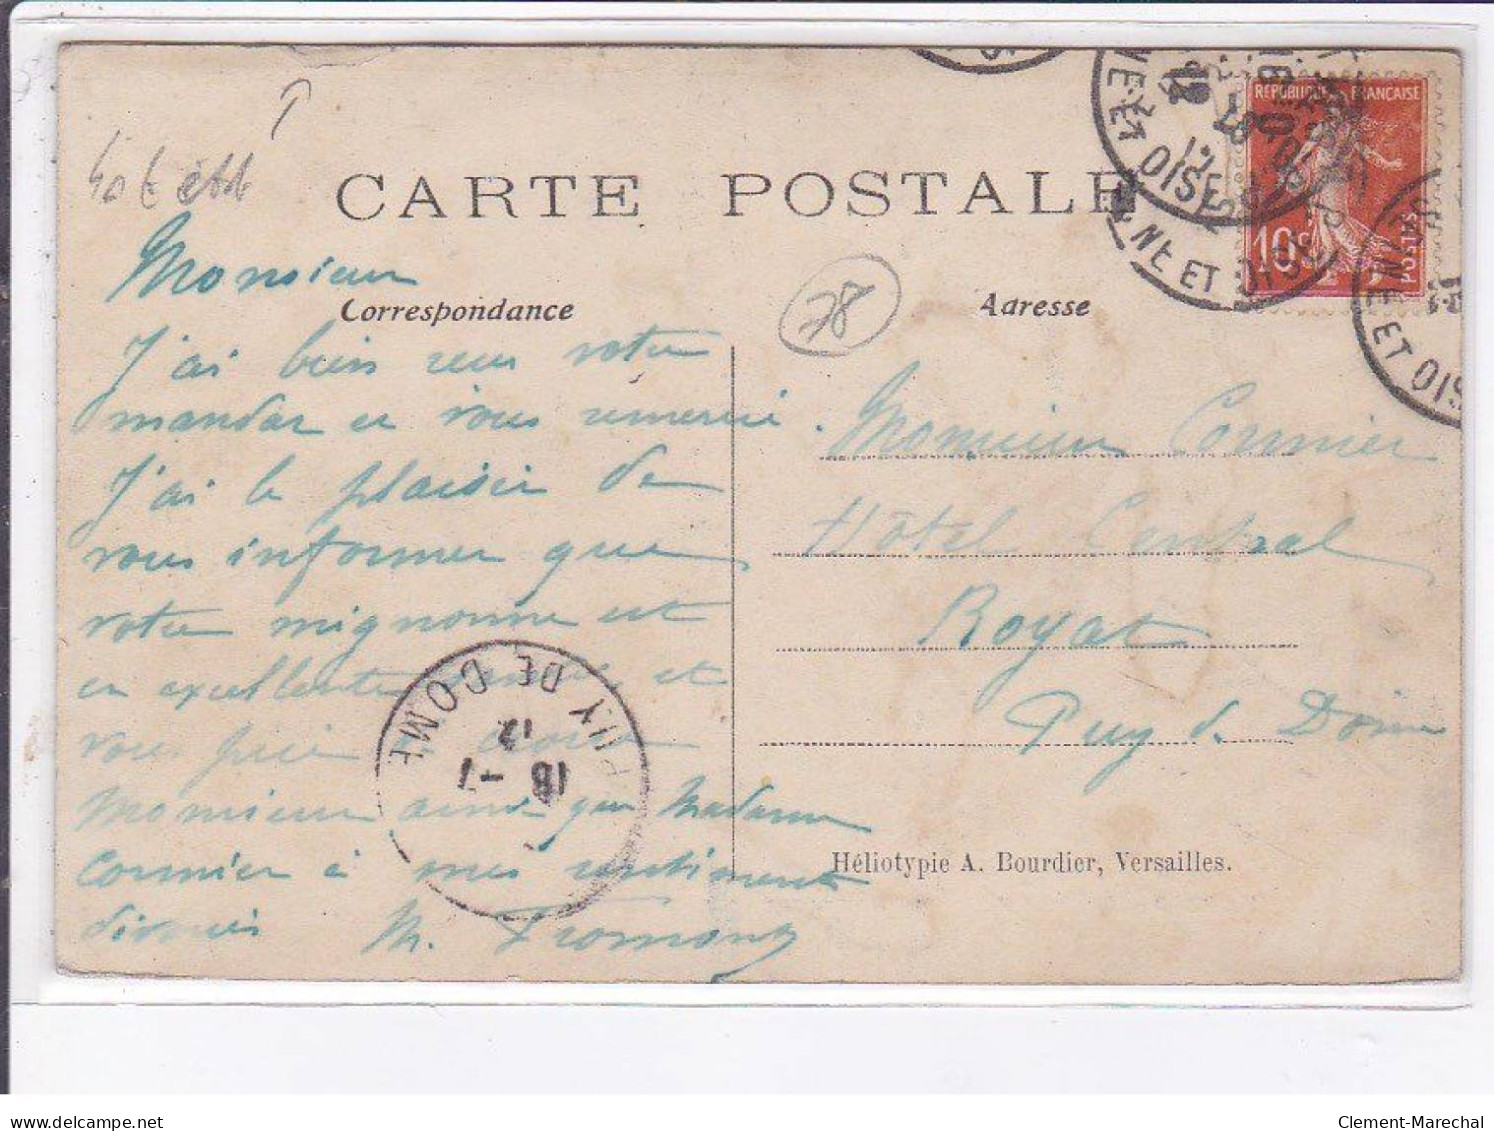 CARTE POSTALE
Correspondance
Adresse
78
Monsieur
J'ai bien reçu votre
mandat et vous remercie.
J'ai le plaisir de
vous informer que
votre mignonne est
en excellente santé et
vous prie croire
Monsieur ainsi que Madame
Cormier à mes sentiments
dévoués M. Fromont
Monsieur Cormier
Hôtel Central
Royat
Puy de Dôme
Héliotypie A. Bourdier, Versailles.
REPUBLIQUE FRANÇAISE
10c
POSTES
NE ET OISE
NE ET OISE
NE ET OISE
PUY DE DOME
16 -7
12
Clement-Marechal
delcampe.net